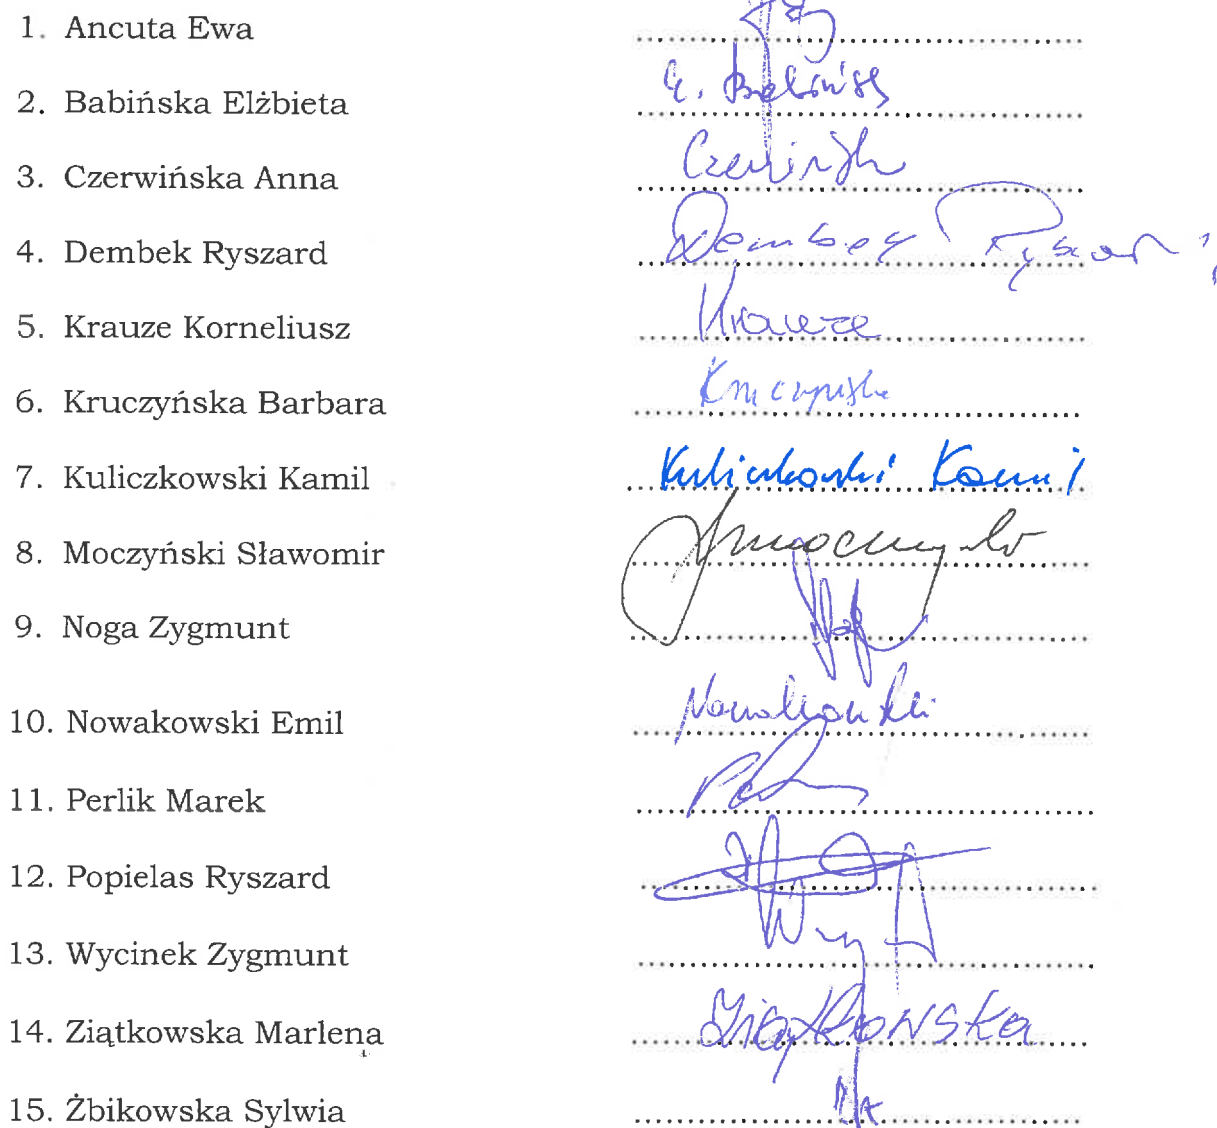 1. Ancuta Ewa
2. Babińska Elżbieta E. Babińska
3. Czerwińska Anna Czerwińska
4. Dembek Ryszard Dembek Ryszard
5. Krauze Korneliusz Krauze
6. Kruczyńska Barbara Kruczyńska
7. Kuliczkowski Kamil Kuliczkowski Kamil
8. Moczyński Sławomir
9. Noga Zygmunt
10. Nowakowski Emil Nowakowski
11. Perlik Marek
12. Popielas Ryszard
13. Wycinek Zygmunt
14. Ziątkowska Marlena Ziątkowska
15. Żbikowska Sylwia